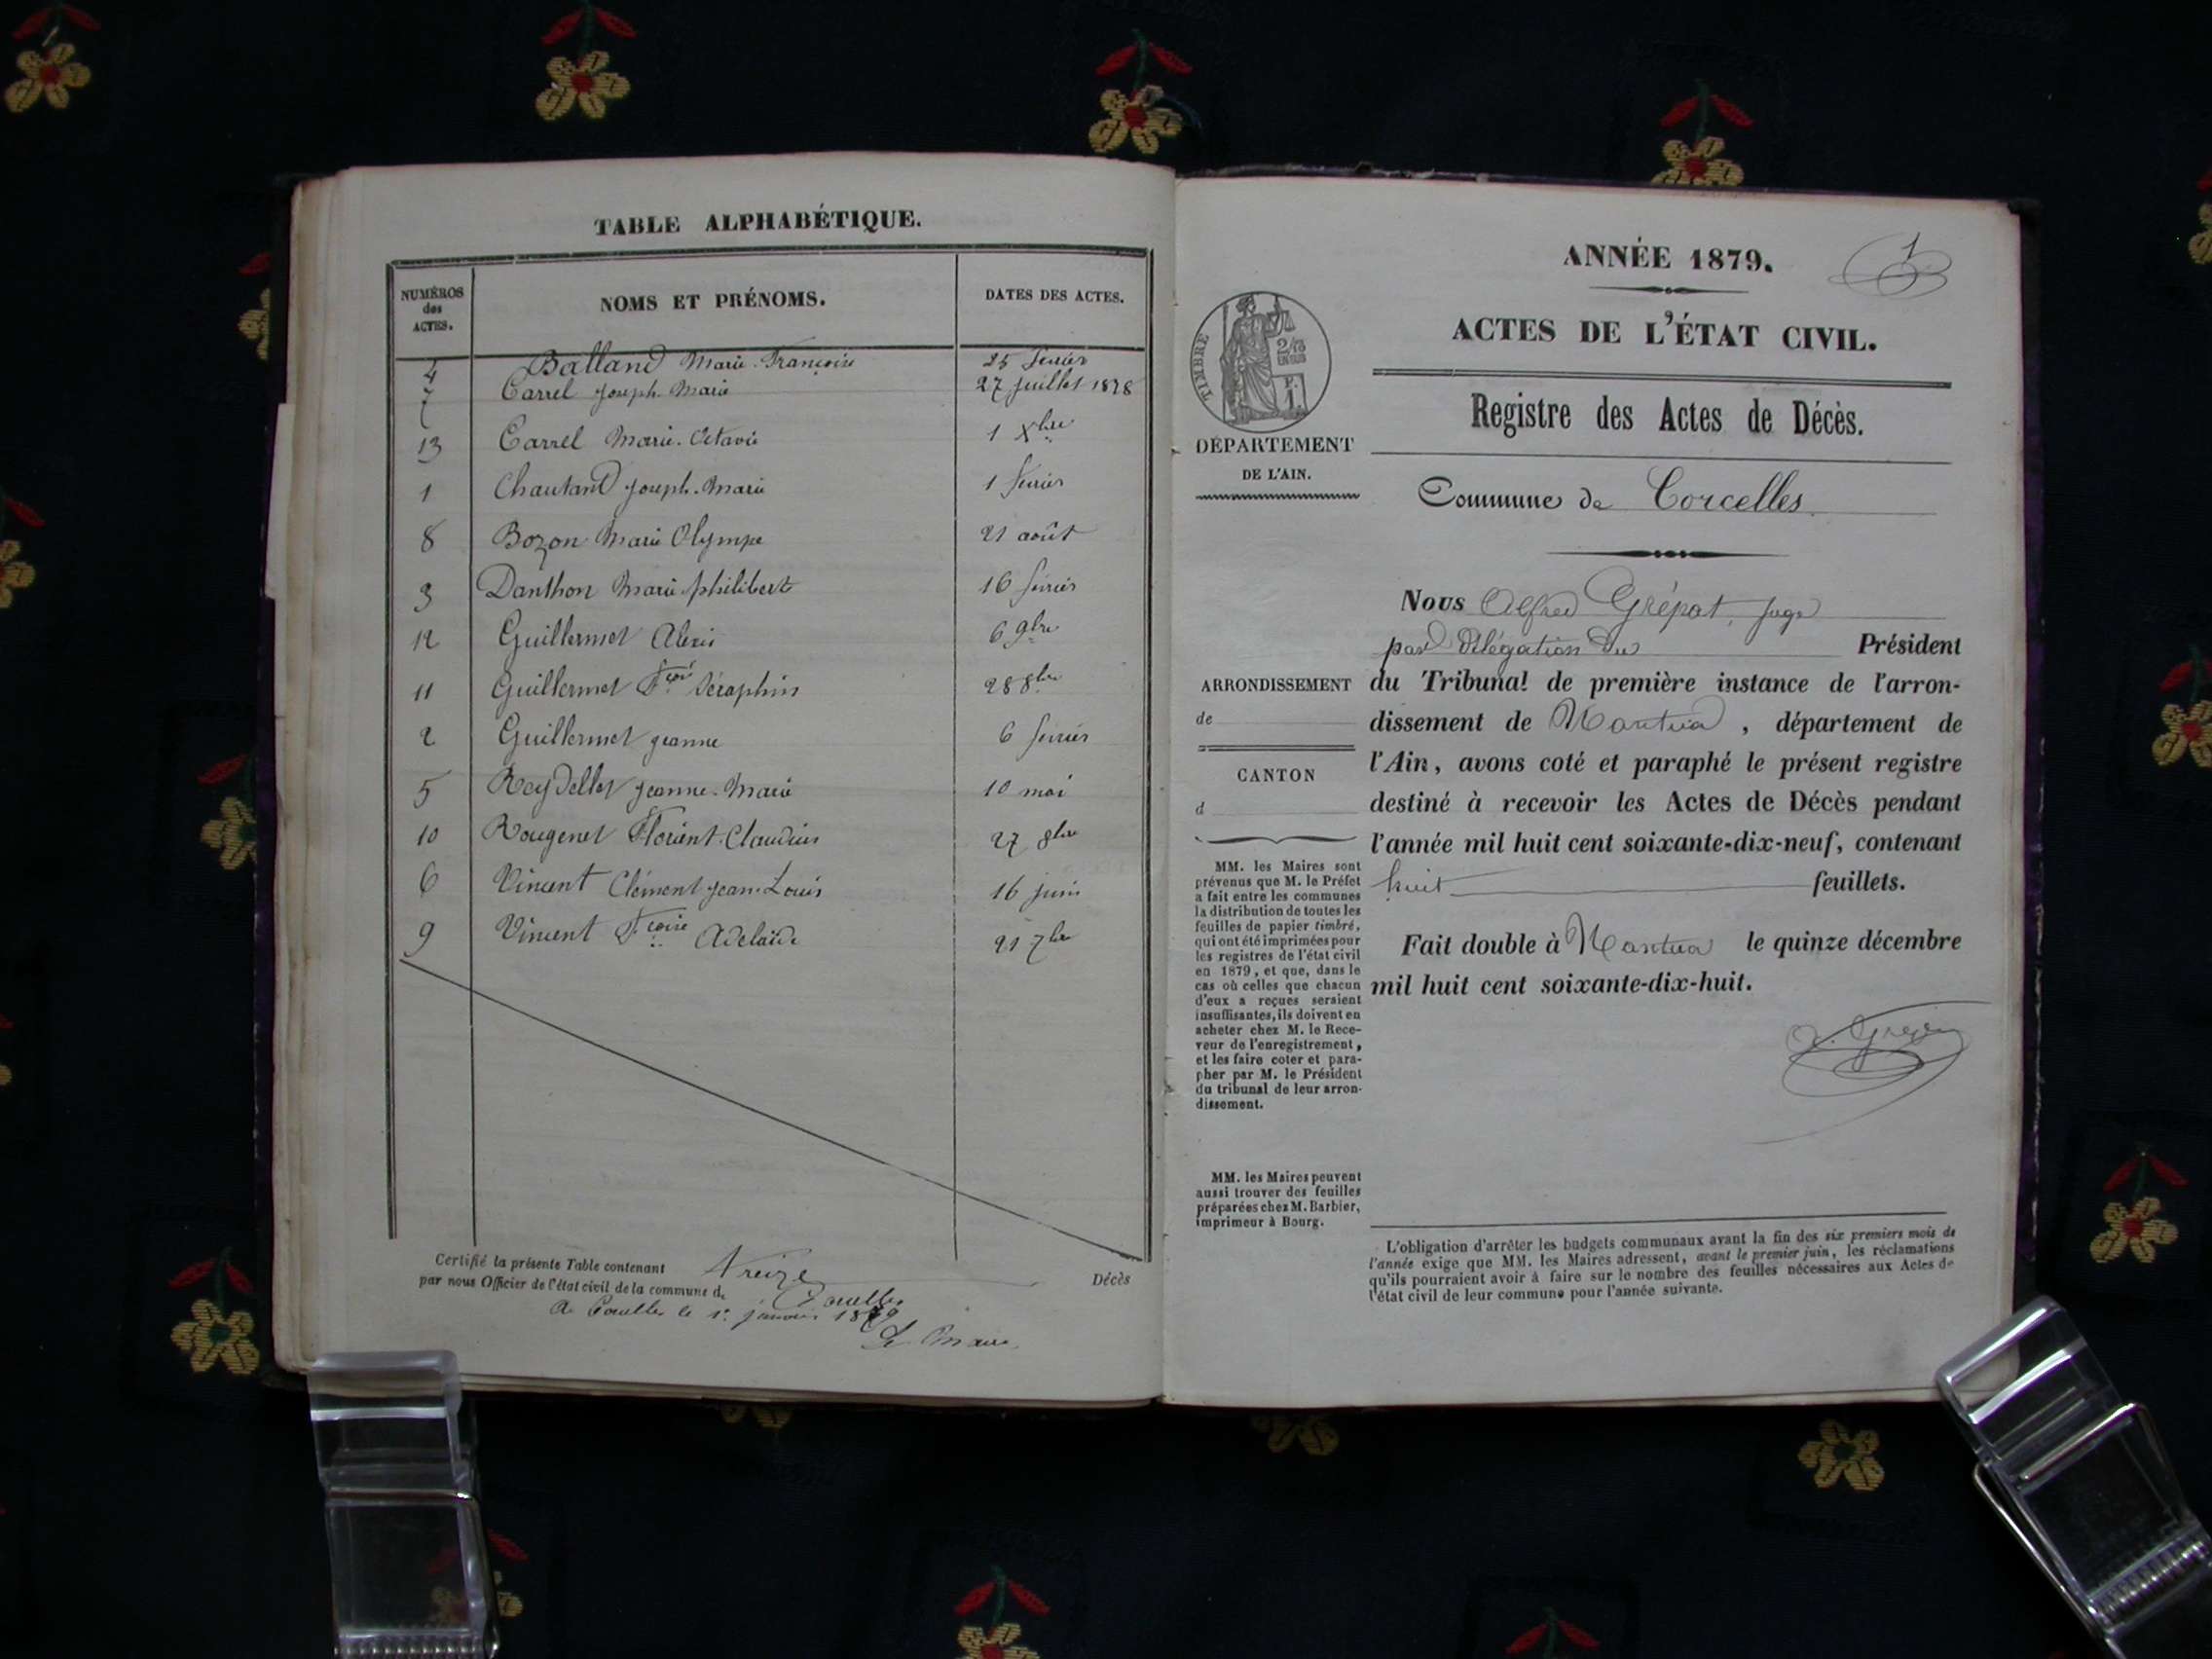 TABLE ALPHABÉTIQUE.
NUMÉROS des ACTES. NOMS ET PRÉNOMS. DATES DES ACTES.
4 Balland Marie-Françoise 25 février
7 Carrel Joseph-Marie 27 juillet 1878
13 Carrel Marie-Octavie 1 Xbre
1 Joseph-Marie 1 février
8 Bozon Marie Olympe 21 août
3 Danthon Marie philibert 16 février
12 Guillermet Alexis 6 9bre
11 Guillermet Séraphin 28 8bre
2 Guillermet jeanne 6 février
5 Reydellet jeanne-Marie 10 mai
10 Rougenet Florient-Claudius 27 8bre
6 Vincent Clément jean-Louis 16 juin
9 Vincent Fcoise Adelaïde 21 7bre
Certifié la présente Table contenant Treize Décès
par nous Officier de l'état civil de la commune de Corcelles
A Corcelles le 1er janvier 1879
Le Maire
ANNÉE 1879. 1
ACTES DE L'ÉTAT CIVIL.
Registre des Actes de Décès.
Commune de Corcelles
TIMBRE
2/10 EN SUS
F. 1.
DÉPARTEMENT
DE L'AIN.
ARRONDISSEMENT
de
CANTON
d
MM. les Maires sont
prévenus que M. le Préfet
a fait entre les communes
la distribution de toutes les
feuilles de papier timbré,
qui ont été imprimées pour
les registres de l'état civil
en 1879, et que, dans le
cas où celles que chacun
d'eux a reçues seraient
insuffisantes, ils doivent en
acheter chez M. le Rece-
veur de l'enregistrement,
et les faire coter et para-
pher par M. le Président
du tribunal de leur arron-
dissement.
MM. les Maires peuvent
aussi trouver des feuilles
préparées chez M. Barbier,
imprimeur à Bourg.
Nous Alfred Grépat, juge
par délégation du Président
du Tribunal de première instance de l'arron-
dissement de Nantua, département de
l'Ain, avons coté et paraphé le présent registre
destiné à recevoir les Actes de Décès pendant
l'année mil huit cent soixante-dix-neuf, contenant
huit feuillets.
Fait double à Nantua le quinze décembre
mil huit cent soixante-dix-huit.
L'obligation d'arrêter les budgets communaux avant la fin des six premiers mois de
l'année exige que MM. les Maires adressent, avant le premier juin, les réclamations
qu'ils pourraient avoir à faire sur le nombre des feuilles nécessaires aux Actes de
l'état civil de leur commune pour l'année suivante.